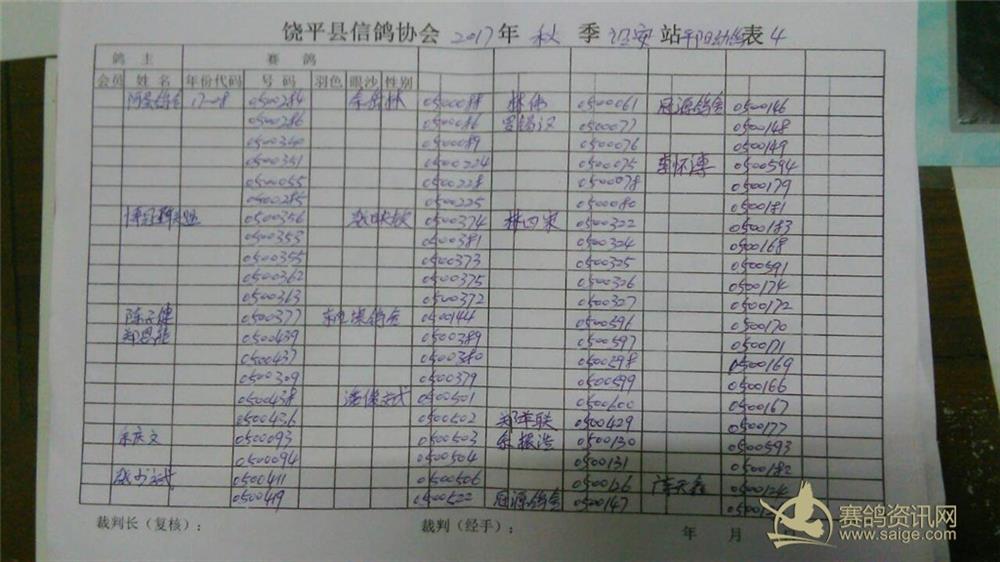 饶平县信鸽协会 2017年 秋 季 站 表 4
鸽 主 赛 鸽
会员 姓 名 年份代码 号 码 羽色 眼沙 性别
17-08 0500284 0500088 林伟 0500061 冠源鸽舍 0500146
0500286 0500086 0500077 0500148
0500340 0500089 0500076 0500149
0500341 0500224 0500075 李怀溥 0500594
0500055 0500228 0500078 0500179
0500285 0500225 0500080 0500181
0500356 0500374 林四宋 0500322 0500183
0500353 0500381 0500324 0500168
0500355 0500373 0500325 0500591
0500362 0500375 0500326 0500174
0500363 0500372 0500327 0500172
0500377 0500144 0500596 0500170
0500439 0500389 0500597 0500171
0500437 0500380 0500598 0500169
0500309 0500379 0500599 0500166
0500438 0500501 0500600 0500167
0500436 0500502 0500429 0500177
0500093 0500503 余振浩 0500130 0500593
0500094 0500504 0500131 0500182
0500411 0500506 0500126 0500124
0500419 0500522 冠源鸽舍 0500147
裁判长（复核）： 裁判（经手）： 年 月 日
赛鸽资讯网
www.saige.com